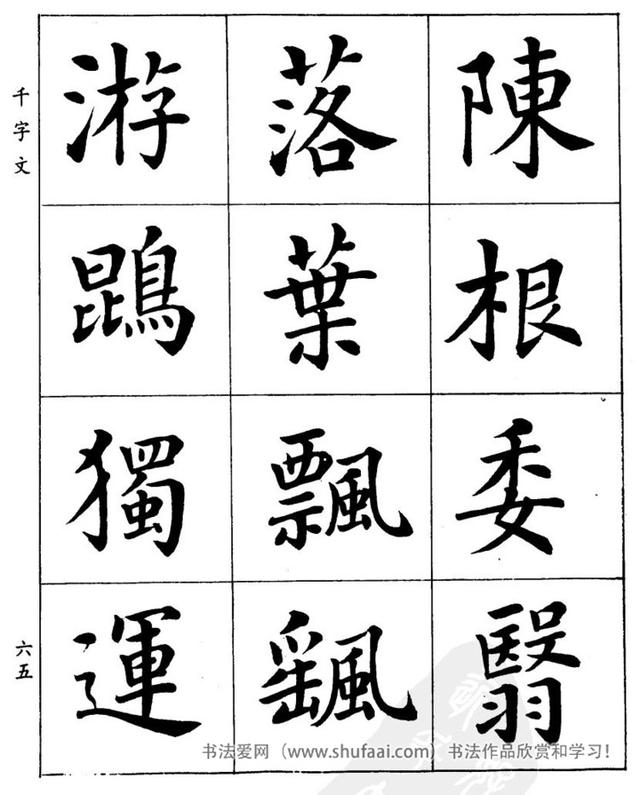 陳根委翳
落葉飄颻
游鵾獨運
千字文
六五
书法爱网（www.shufaai.com）书法作品欣赏和学习！